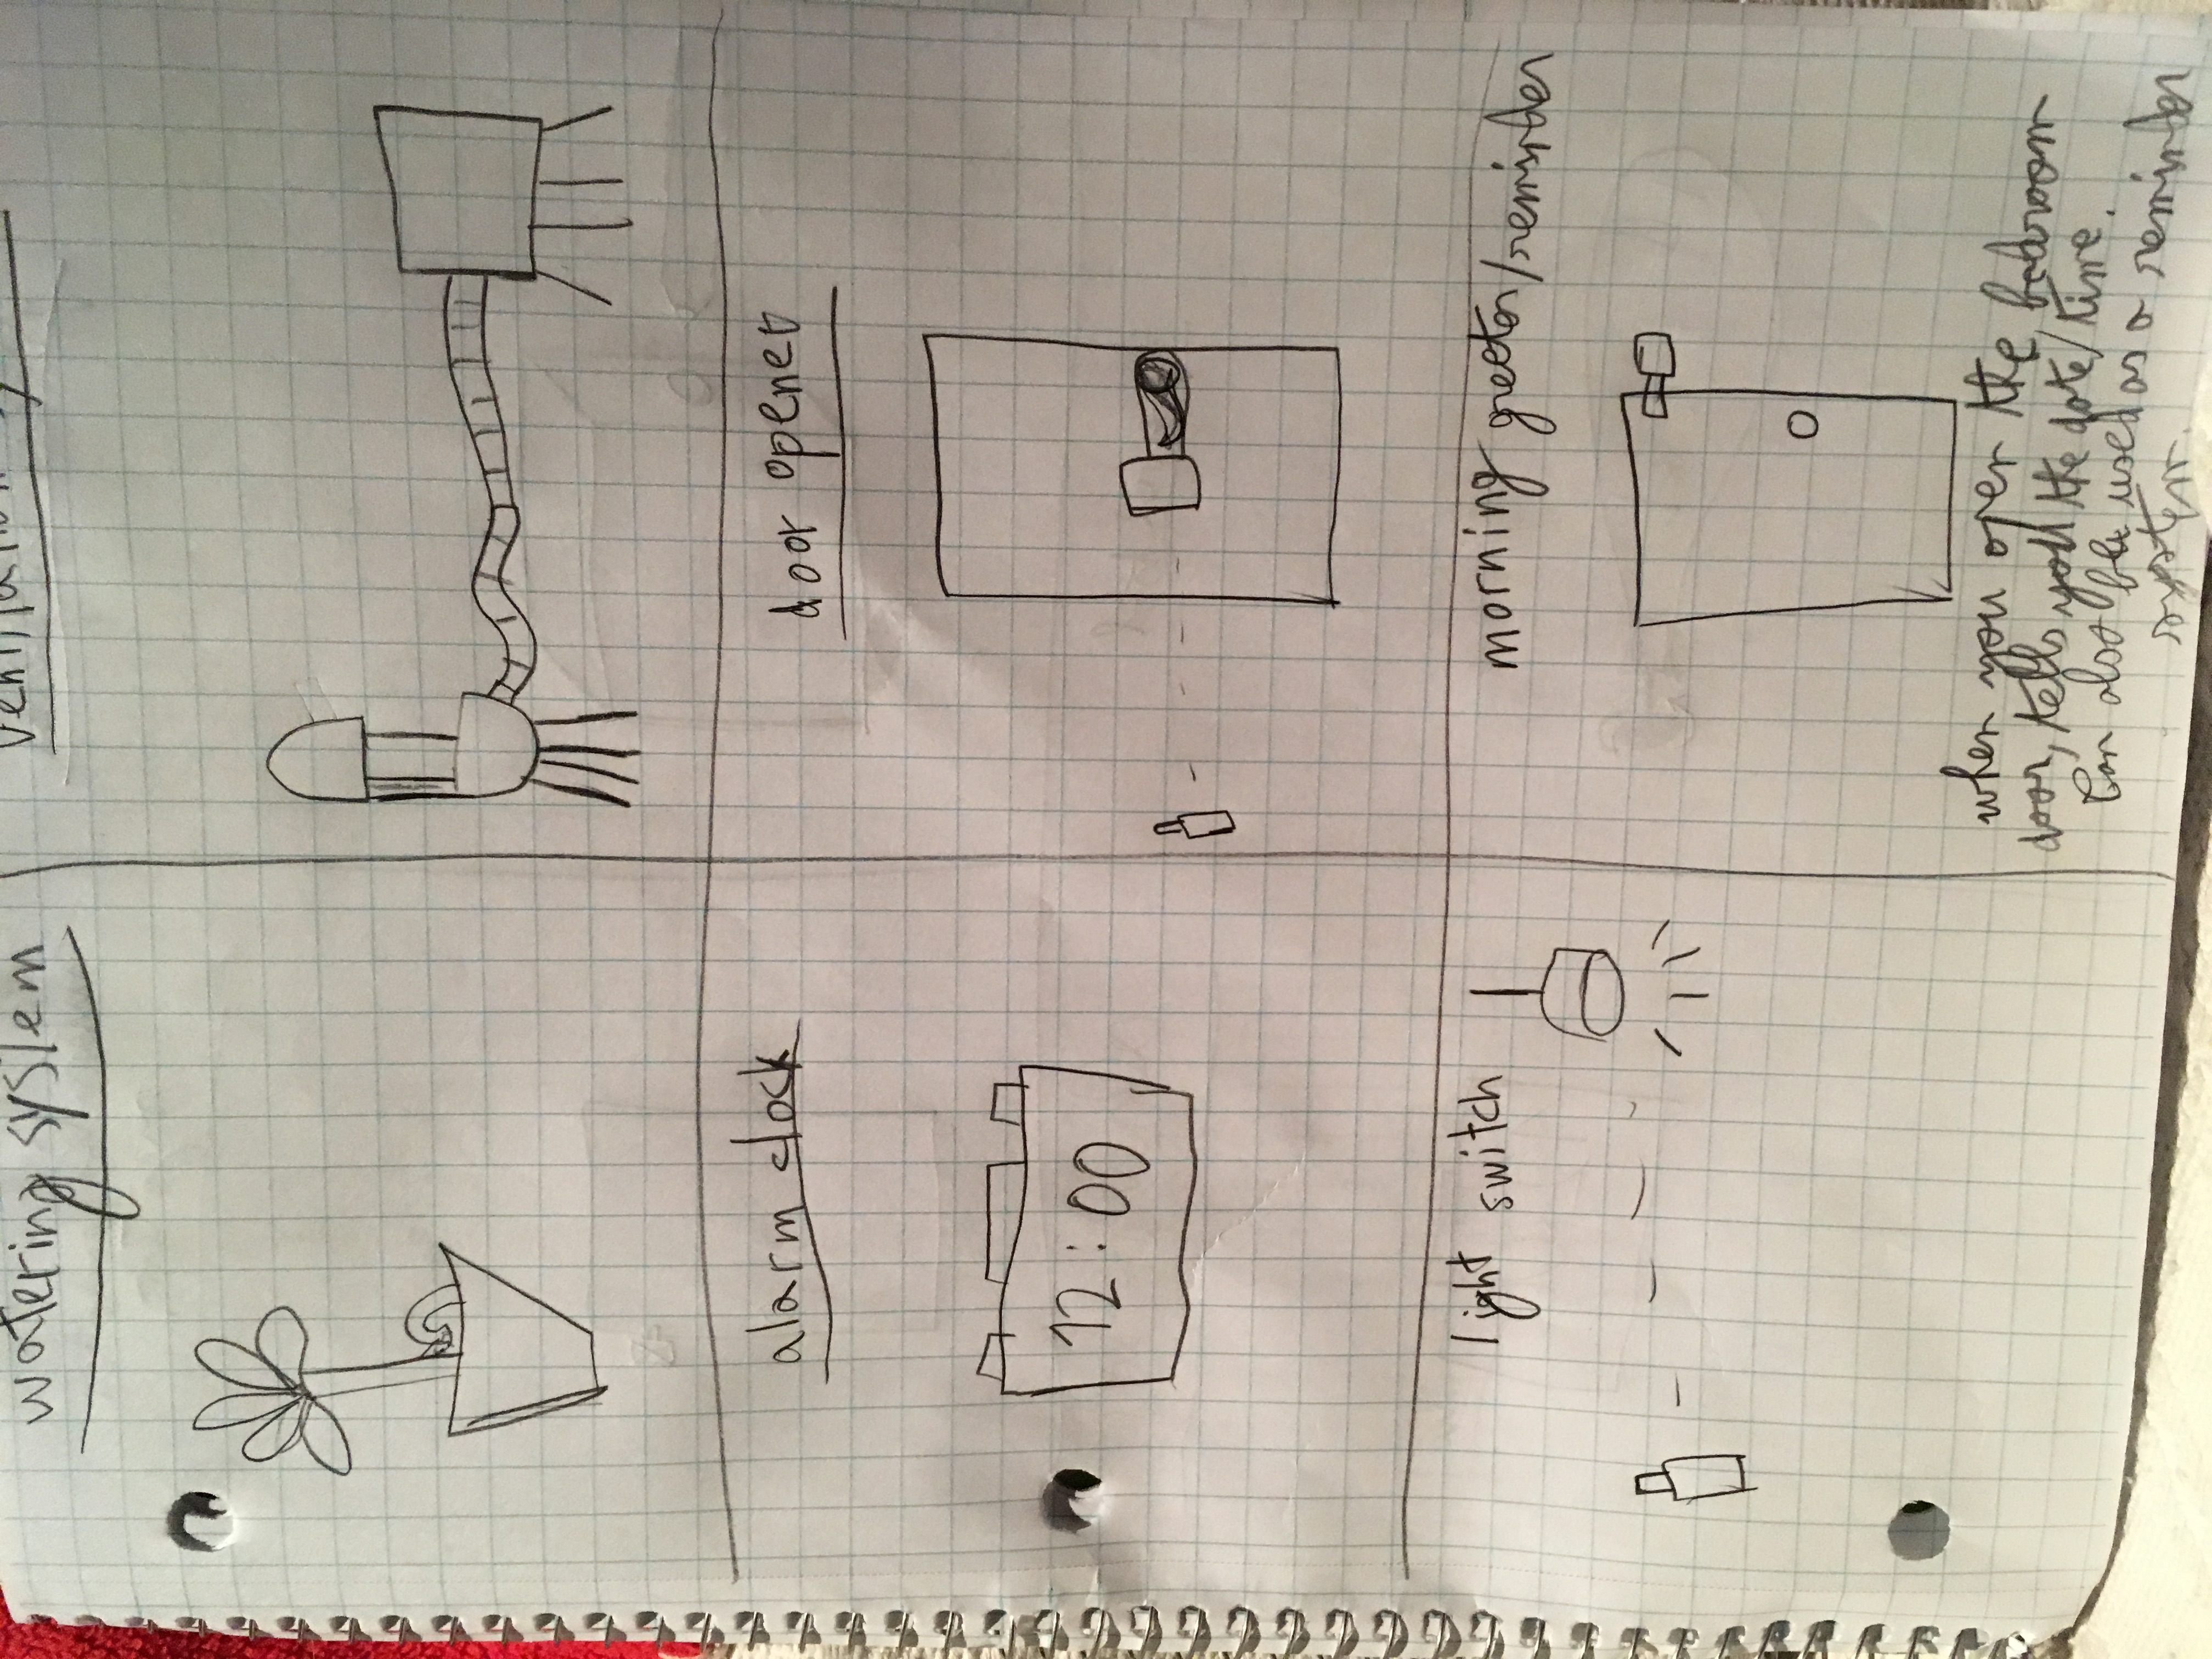 watering system
ventilation
alarm clock
door opener
12:00
light switch
morning greeter/reminder
when you open the bedroom
door, tells you the date/time.
Can also be used as a reminder
system.